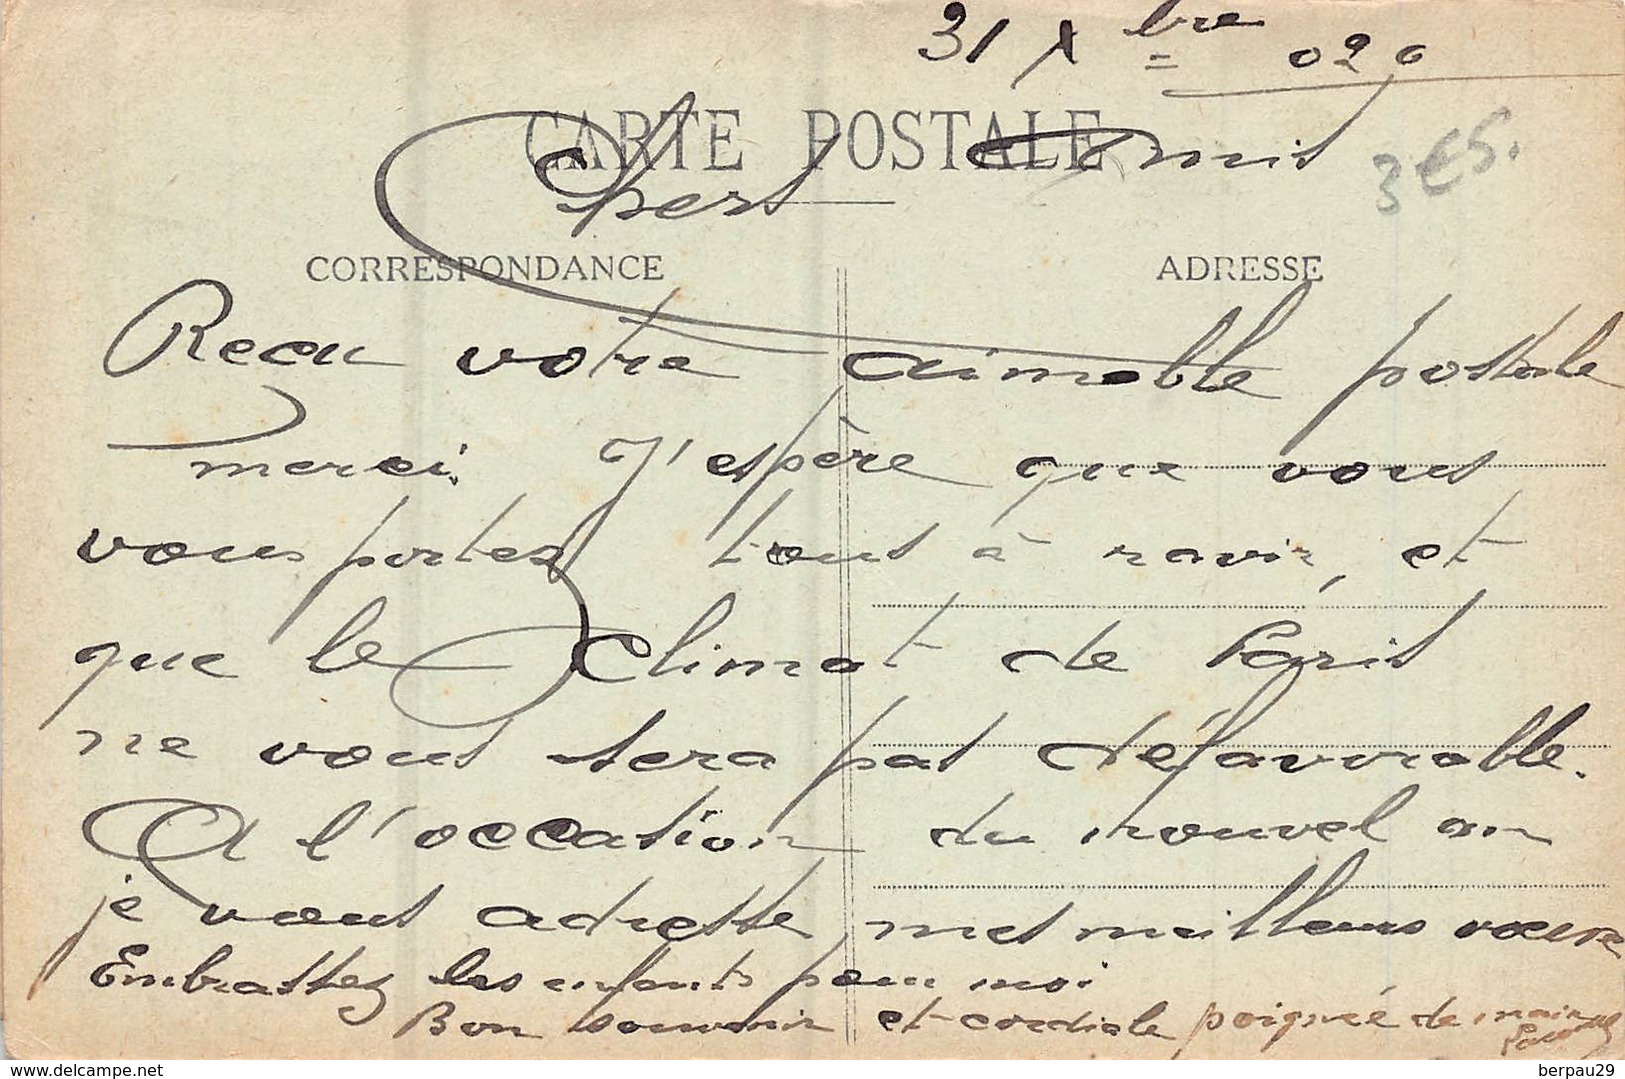 31 Xbre 020
CARTE POSTALE
Chers Amis
3€5.
CORRESPONDANCE
ADRESSE
Reçu votre aimable postale
merci. J'espère que vous
vous portez tous à ravir, et
que le Climat de Paris
ne vous sera pas défavorable.
A l'occasion du nouvel an
je vous adresse, mes meilleurs vœux
Embrassez les enfants pour moi.
Bon souvenir et cordiale poignée de main
www.delcampe.net
berpau29